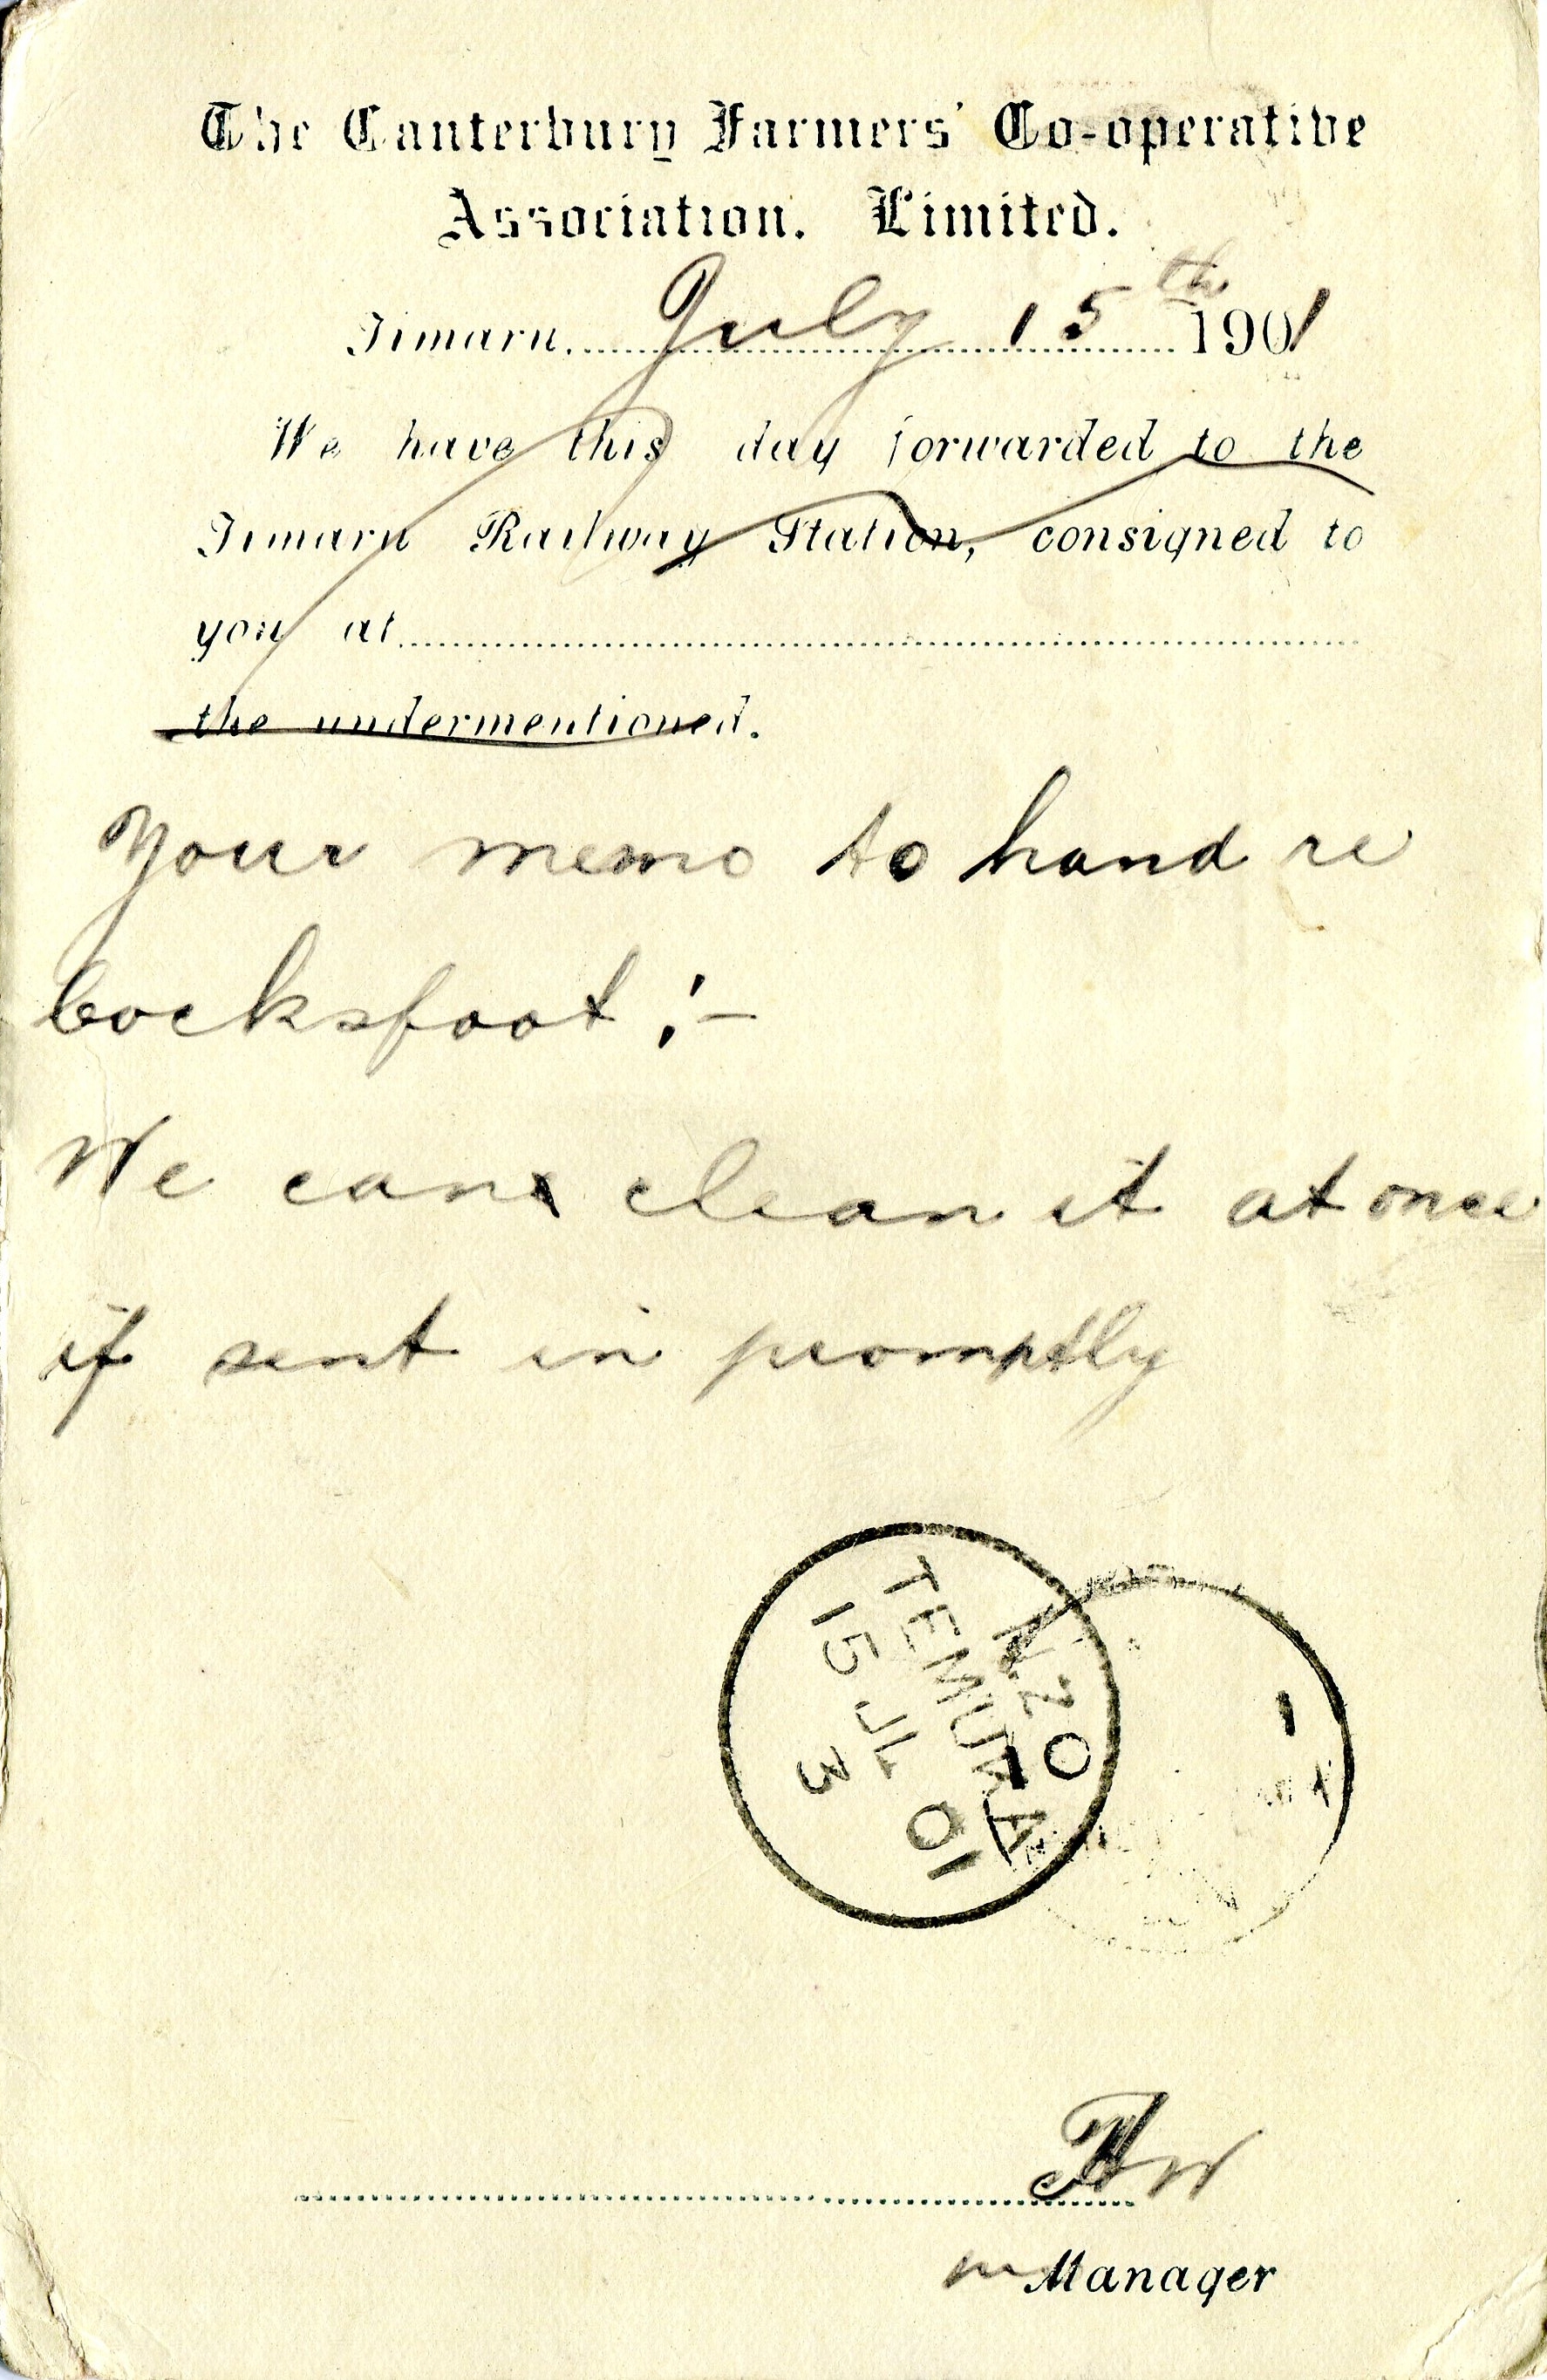 The Canterbury Farmers' Co-operative
Association, Limited.
Timaru, July 15th 1901
We have this day forwarded to the
Timaru Railway Station, consigned to
you at
the undermentioned.
Your memo to hand re
Cocksfoot :-
We can clean it at once
if sent in promptly
N.Z
TEMUKA
15 JL 01
3
Manager